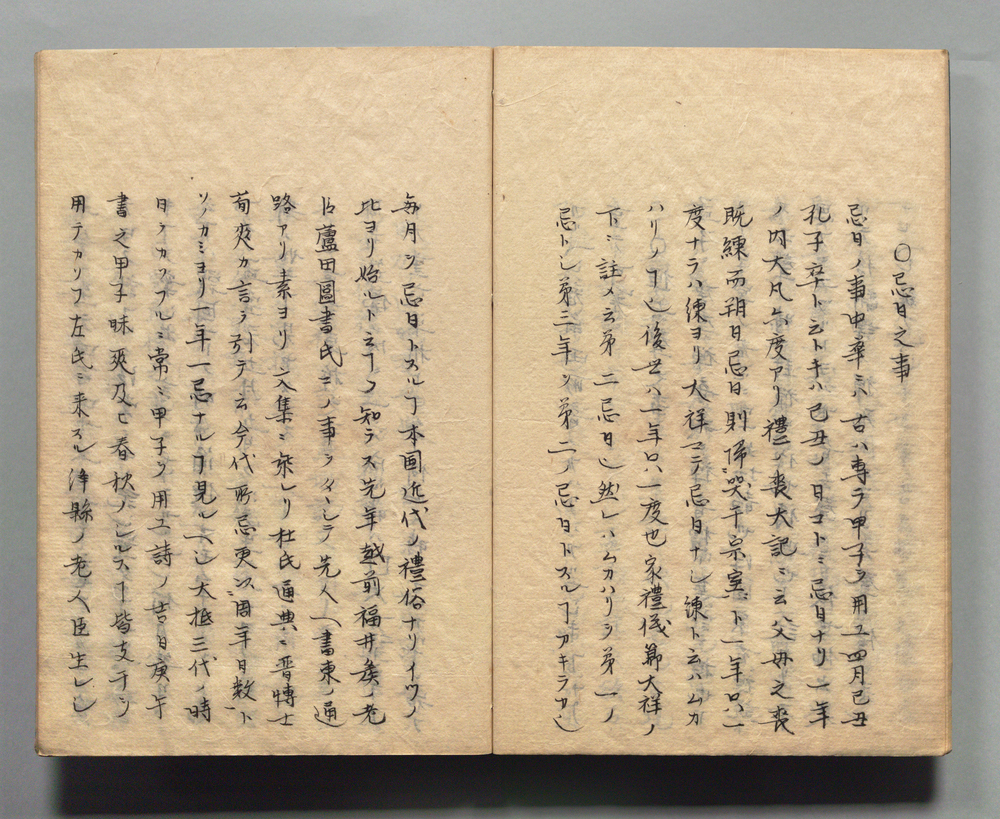 〇忌日之事
忌日ノ事中華ニハ古ハ専ラ甲子ヲ用ユ四月己丑
孔子卒ト云トキハ己丑ノ日コトニ忌日ナリ一年
ノ内大凡六度アリ禮ノ喪大記ニ云父母之喪
既練而朔日忌日則帰哭于宗室ト一年只一
度ナラハ練ヨリ大祥マテ忌日ナシ練ト云ハムカ
ハリノヿ也後世ハ一年只一度也家禮儀節大祥ノ
下ニ註メ云第二忌日也然レハムカハリヲ第一ノ
忌トシ第三年ヲ第二ノ忌日トスルヿアキラカ也
毎月ヲ忌日トスルヿ本国近代ノ禮俗ナリイツノ
比ヨリ始ルト云ヿヲ知ラス先年越前福井矦ノ老
臣蘆田圖書氏コノ事ヲ先人ヘ書東ノ通
路アリ素ヨリ文集ニ乘レリ杜氏通典ニ晋博士
荀爽カ言ヲ引テ云今代所忌更以周年日数ト
ソノカミヨリ一年一忌ナルヿ見ルヘシ大抵三代ノ時
日ヲカソフルニ常ニ甲子ヲ用ユ詩ノ吉日庚午
書之甲子昧爽及ヒ春秋ノシルス皆支干ヲ
用テカソフ左氏ニ来スル絳縣ノ老人臣生レシ